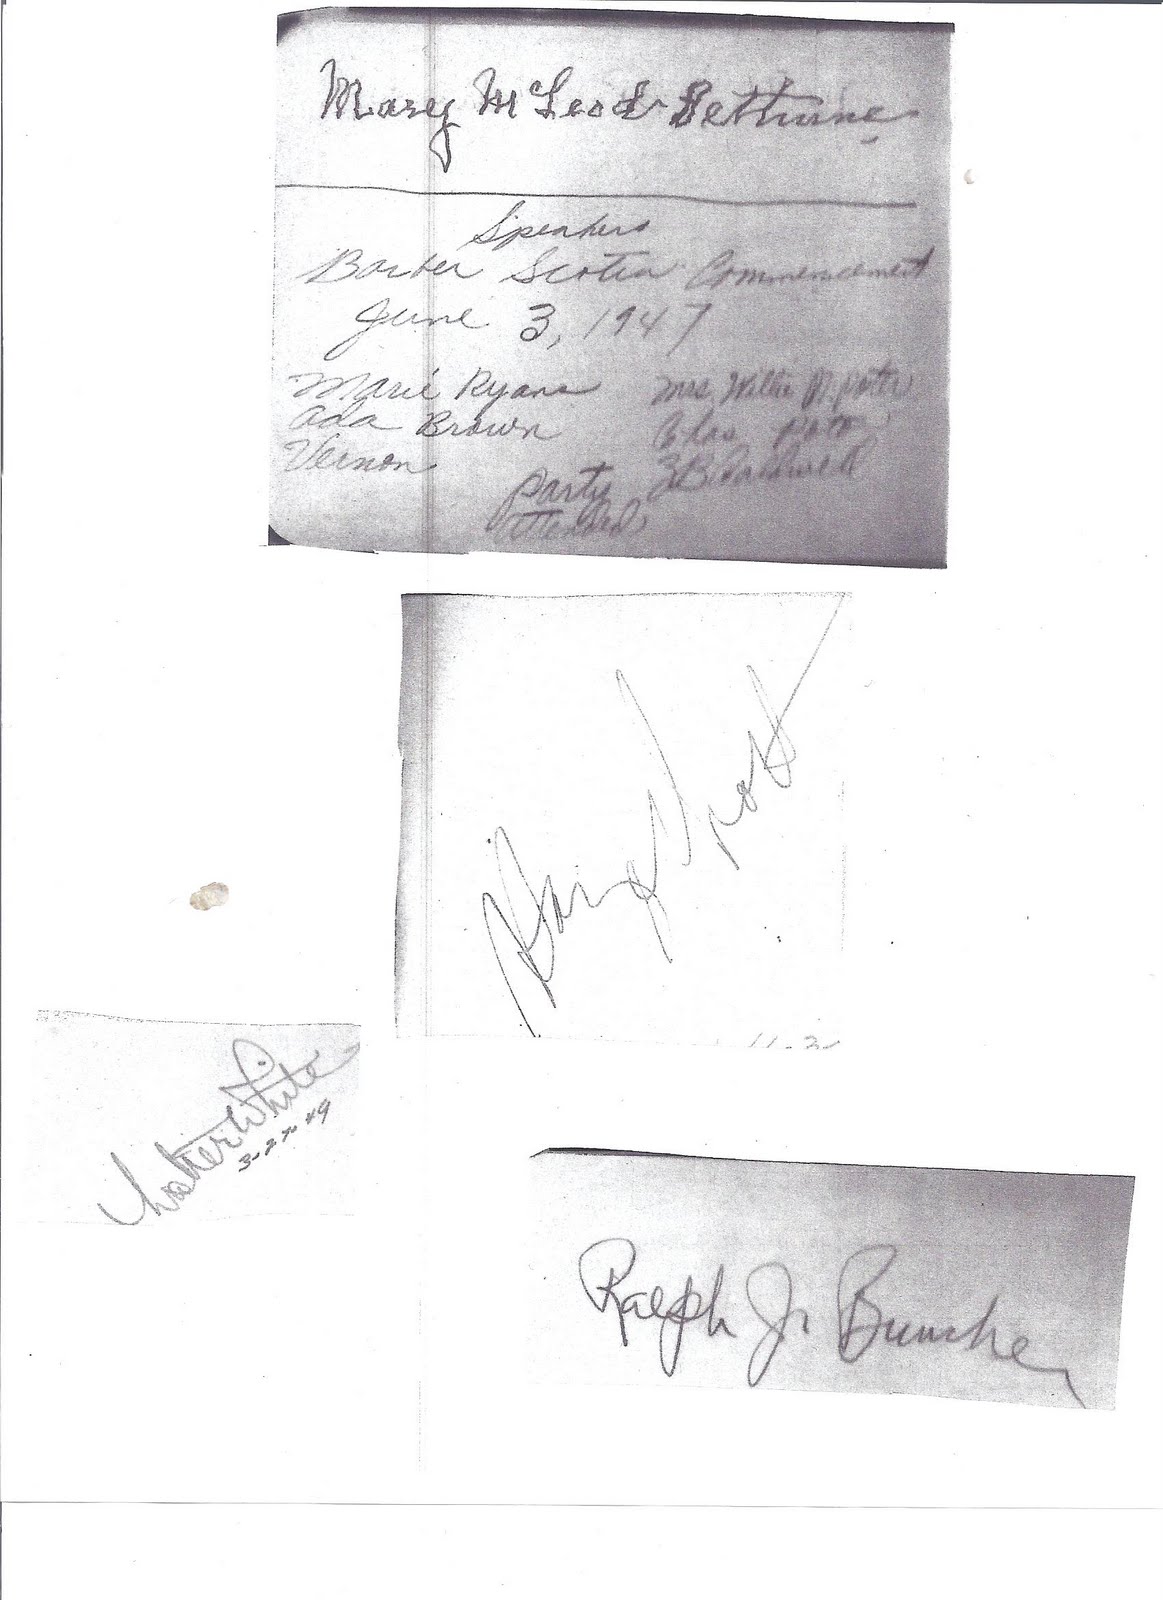 Mary McLeod Bethune
Speakers
Barber Scotia Commencement
June 3, 1947
Marie Ryans
Ada Brown
Vernon
Mrs. Willie
Chas
Party
attended
11-3
Walter White
3-27-49
Ralph J. Bunche